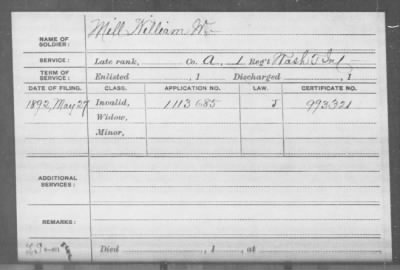 NAME OF SOLDIER: Mill William W.
SERVICE: Late rank, Co. A, 1 Reg't Wash T Inf
TERM OF SERVICE: Enlisted , 1 Discharged , 1
DATE OF FILING. CLASS. APPLICATION NO. LAW. CERTIFICATE NO.
1892, May 27 Invalid, 1113685 J 993321
Widow,
Minor,
ADDITIONAL SERVICES:
REMARKS:
Died , 1 , at